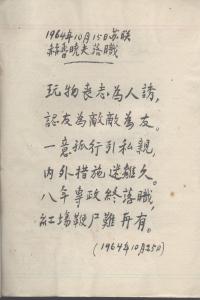 1964年10月15日苏联
赫鲁晓夫落职
玩物丧志为人誘，
認友为敵敵为友。
一意孤行引私親，
内外措施迷離久。
八年專政終落職，
紅場鞭尸難再有。
(1964年10月25日)